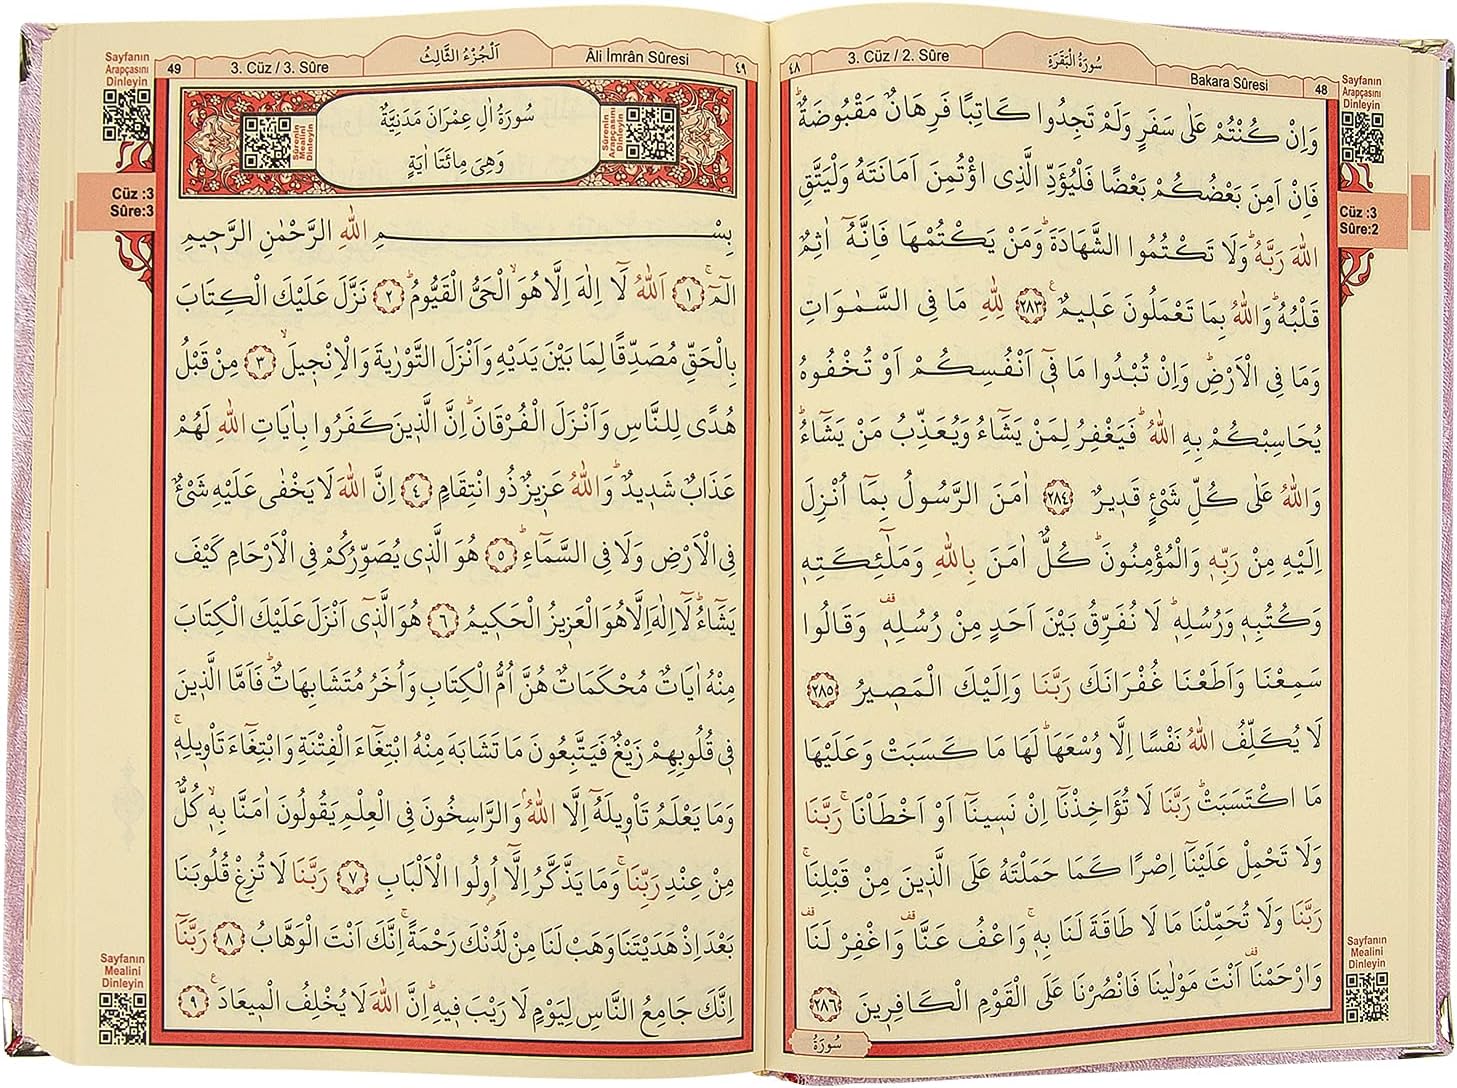 48
Bakara Sûresi
سُورَةُ الْبَقَرَةِ
3. Cüz / 2. Sûre
٤٨
Sayfanın
Arapçasını
Dinleyin
Cüz :3
Sûre:2
وَاِنْ كُنْتُمْ عَلٰى سَفَرٍ وَلَمْ تَجِدُوا كَاتِبًا فَرِهَانٌ مَقْبُوضَةٌۜ
فَاِنْ اَمِنَ بَعْضُكُمْ بَعْضًا فَلْيُؤَدِّ الَّذِى اؤْتُمِنَ اَمَانَتَهُ وَلْيَتَّقِ
اللّٰهَ رَبَّهُۜ وَلَا تَكْتُمُوا الشَّهَادَةَۜ وَمَنْ يَكْتُمْهَا فَاِنَّهُٓ اٰثِمٌ
قَلْبُهُۜ وَاللّٰهُ بِمَا تَعْمَلُونَ عَل۪يمٌ۟ ﴿٢٨٣﴾ لِلّٰهِ مَا فِى السَّمٰوَاتِ
وَمَا فِى الْاَرْضِۜ وَاِنْ تُبْدُوا مَا ف۪ٓى اَنْفُسِكُمْ اَوْ تُخْفُوهُ
يُحَاسِبْكُمْ بِهِ اللّٰهُۜ فَيَغْفِرُ لِمَنْ يَشَٓاءُ وَيُعَذِّبُ مَنْ يَشَٓاءُۜ
وَاللّٰهُ عَلٰى كُلِّ شَىْءٍ قَد۪يرٌ ﴿٢٨٤﴾ اٰمَنَ الرَّسُولُ بِمَٓا اُنْزِلَ
اِلَيْهِ مِنْ رَبِّه۪ وَالْمُؤْمِنُونَۜ كُلٌّ اٰمَنَ بِاللّٰهِ وَمَلٰٓئِكَتِه۪
وَكُتُبِه۪ وَرُسُلِه۪ۜ لَا نُفَرِّقُ بَيْنَ اَحَدٍ مِنْ رُسُلِه۪ قف وَقَالُوا
سَمِعْنَا وَاَطَعْنَا غُفْرَانَكَ رَبَّنَا وَاِلَيْكَ الْمَص۪يرُ ﴿٢٨٥﴾
لَا يُكَلِّفُ اللّٰهُ نَفْسًا اِلَّا وُسْعَهَاۜ لَهَا مَا كَسَبَتْ وَعَلَيْهَا
مَا اكْتَسَبَتْۜ رَبَّنَا لَا تُؤَاخِذْنَٓا اِنْ نَس۪ينَٓا اَوْ اَخْطَاْنَاۚ رَبَّنَا
وَلَا تَحْمِلْ عَلَيْنَٓا اِصْرًا كَمَا حَمَلْتَهُ عَلَى الَّذ۪ينَ مِنْ قَبْلِنَاۚ
رَبَّنَا وَلَا تُحَمِّلْنَا مَا لَا طَاقَةَ لَنَا بِه۪ۚ وَاعْفُ عَنَّا قف وَاغْفِرْ لَنَا قف
وَارْحَمْنَا قف اَنْتَ مَوْلٰينَا فَانْصُرْنَا عَلَى الْقَوْمِ الْكَافِر۪ينَ ﴿٢٨٦﴾
سُورَةُ
Sayfanın
Mealini
Dinleyin
٤٩
Âli İmrân Sûresi
اَلْجُزْءُ الثَّالِثُ
3. Cüz / 3. Sûre
49
Sayfanın
Arapçasını
Dinleyin
Cüz :3
Sûre:3
Sûrenin
Arapçasını
Dinleyin
سُورَةُ اٰلِ عِمْرَانَ مَدَنِيَّةٌ
وَهِىَ مِائَتَا اٰيَةٍ
Sûrenin
Mealini
Dinleyin
بِسْمِ اللّٰهِ الرَّحْمٰنِ الرَّح۪يمِ
الٓمٓۚ ﴿١﴾ اَللّٰهُ لَٓا اِلٰهَ اِلَّا هُوَۙ الْحَىُّ الْقَيُّومُۜ ﴿٢﴾ نَزَّلَ عَلَيْكَ الْكِتَابَ
بِالْحَقِّ مُصَدِّقًا لِمَا بَيْنَ يَدَيْهِ وَاَنْزَلَ التَّوْرٰيةَ وَالْاِنْج۪يلَۙ ﴿٣﴾ مِنْ قَبْلُ
هُدًى لِلنَّاسِ وَاَنْزَلَ الْفُرْقَانَۜ اِنَّ الَّذ۪ينَ كَفَرُوا بِاٰيَاتِ اللّٰهِ لَهُمْ
عَذَابٌ شَد۪يدٌۜ وَاللّٰهُ عَز۪يزٌ ذُو انْتِقَامٍ ﴿٤﴾ اِنَّ اللّٰهَ لَا يَخْفٰى عَلَيْهِ شَىْءٌ
فِى الْاَرْضِ وَلَا فِى السَّمَٓاءِۜ ﴿٥﴾ هُوَ الَّذ۪ى يُصَوِّرُكُمْ فِى الْاَرْحَامِ كَيْفَ
يَشَٓاءُۜ لَٓا اِلٰهَ اِلَّا هُوَ الْعَز۪يزُ الْحَك۪يمُ ﴿٦﴾ هُوَ الَّذ۪ٓى اَنْزَلَ عَلَيْكَ الْكِتَابَ
مِنْهُ اٰيَاتٌ مُحْكَمَاتٌ هُنَّ اُمُّ الْكِتَابِ وَاُخَرُ مُتَشَابِهَاتٌۜ فَاَمَّا الَّذ۪ينَ
ف۪ى قُلُوبِهِمْ زَيْغٌ فَيَتَّبِعُونَ مَا تَشَابَهَ مِنْهُ ابْتِغَٓاءَ الْفِتْنَةِ وَابْتِغَٓاءَ تَاْو۪يلِه۪ۚ
وَمَا يَعْلَمُ تَاْو۪يلَهُٓ اِلَّا اللّٰهُۢ وَالرَّاسِخُونَ فِى الْعِلْمِ يَقُولُونَ اٰمَنَّا بِه۪ۙ كُلٌّ
مِنْ عِنْدِ رَبِّنَاۚ وَمَا يَذَّكَّرُ اِلَّٓا اُو۬لُوا الْاَلْبَابِ ﴿٧﴾ رَبَّنَا لَا تُزِغْ قُلُوبَنَا
بَعْدَ اِذْ هَدَيْتَنَا وَهَبْ لَنَا مِنْ لَدُنْكَ رَحْمَةًۚ اِنَّكَ اَنْتَ الْوَهَّابُ ﴿٨﴾ رَبَّنَٓا
اِنَّكَ جَامِعُ النَّاسِ لِيَوْمٍ لَا رَيْبَ ف۪يهِۜ اِنَّ اللّٰهَ لَا يُخْلِفُ الْم۪يعَادَ۟ ﴿٩﴾
Sayfanın
Mealini
Dinleyin